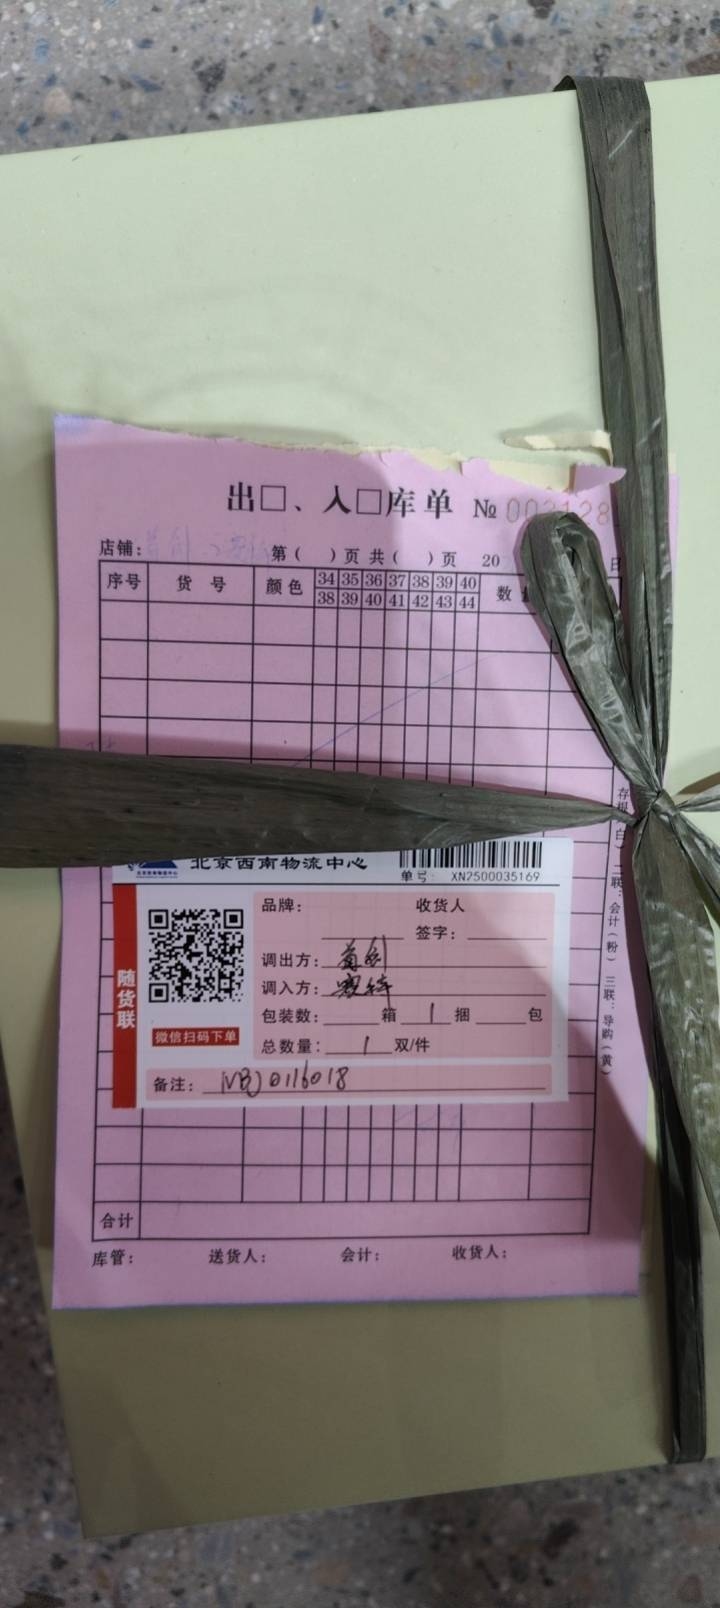 出□、入□库单 №
店铺: 第( )页 共( )页 20 日
序号 货号 颜色 34 35 36 37 38 39 40 数
38 39 40 41 42 43 44
北京西南物流中心
单号: XN2500035169
随货联
微信扫码下单
品牌: 收货人
签字:
调出方: 首创
调入方: 赛特
包装数: 箱 1 捆 包
总数量: 1 双/件
备注: NBJ0116018
合计
库管: 送货人: 会计: 收货人:
存根(白) 二联:会计(粉) 三联:导购(黄)